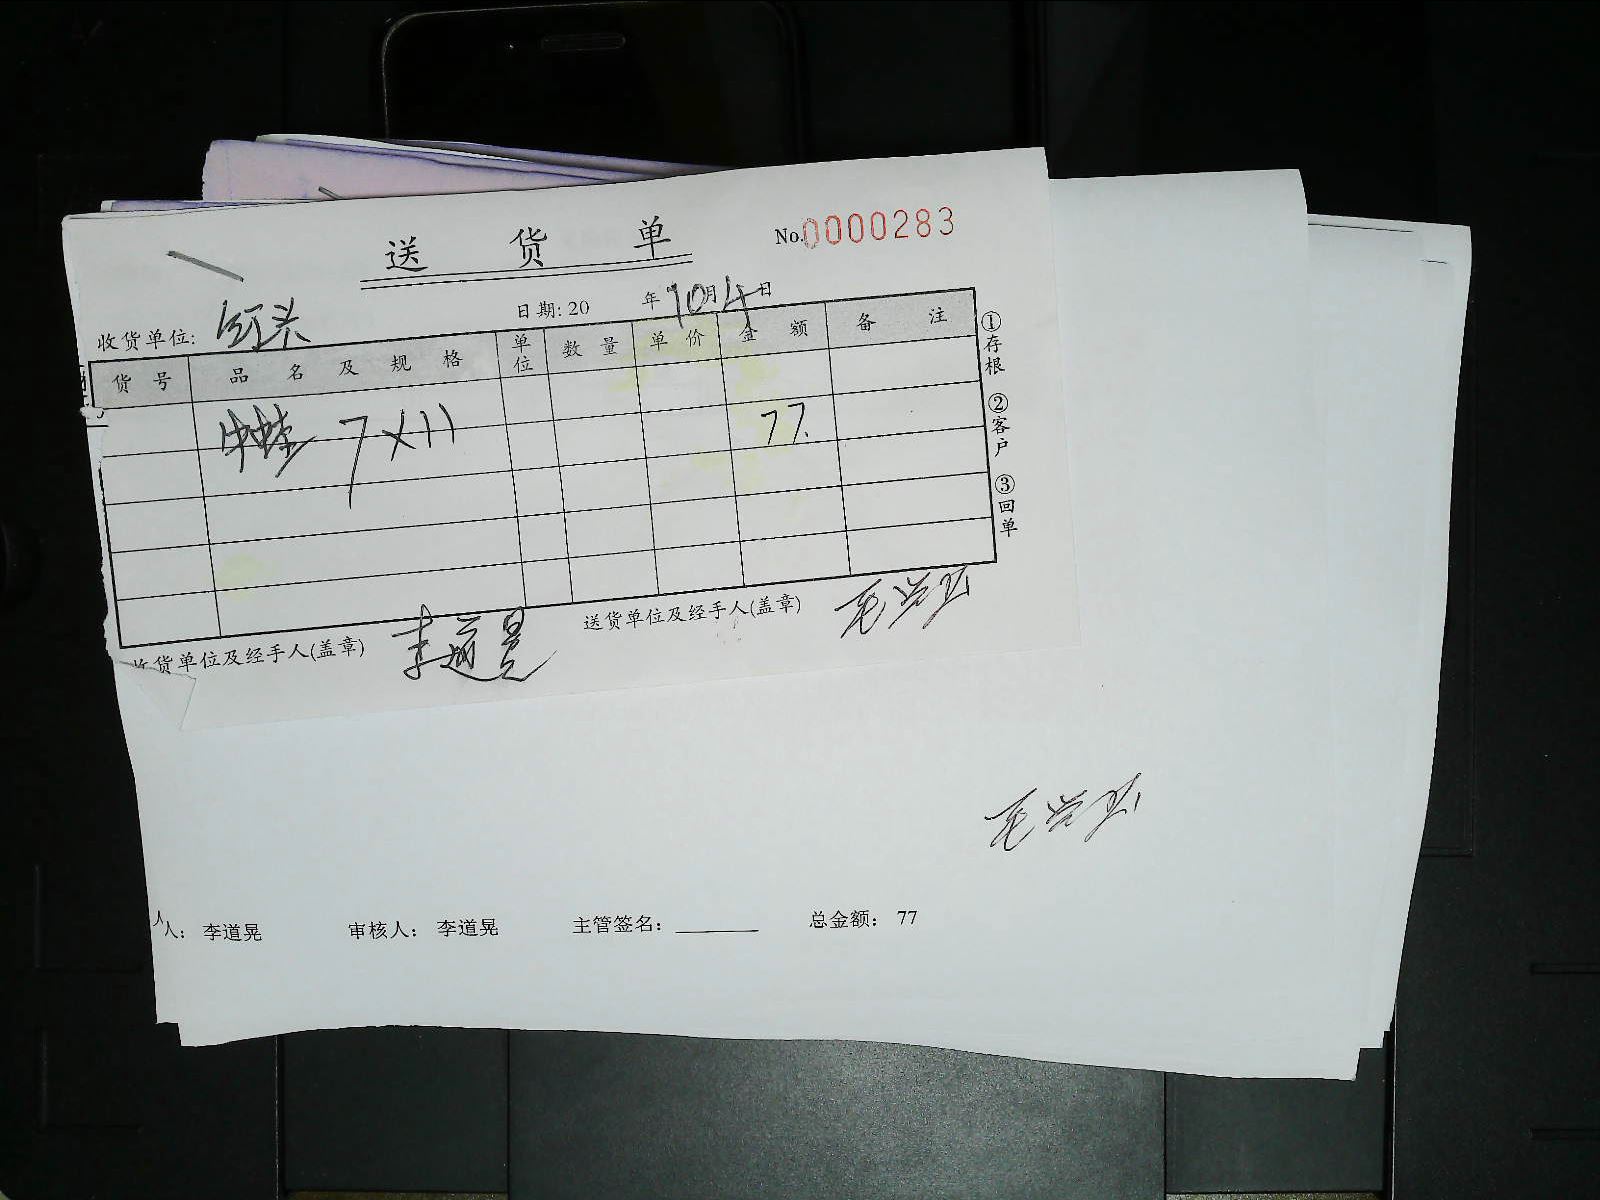 送货单
No.0000283
日期: 20 年10月4日
收货单位:
货号 品名及规格 单位 数量 单价 金额 备注
7×11 77.
①存根 ②客户 ③回单
收货单位及经手人(盖章) 李道晃
送货单位及经手人(盖章)
人： 李道晃 审核人： 李道晃 主管签名： 总金额： 77